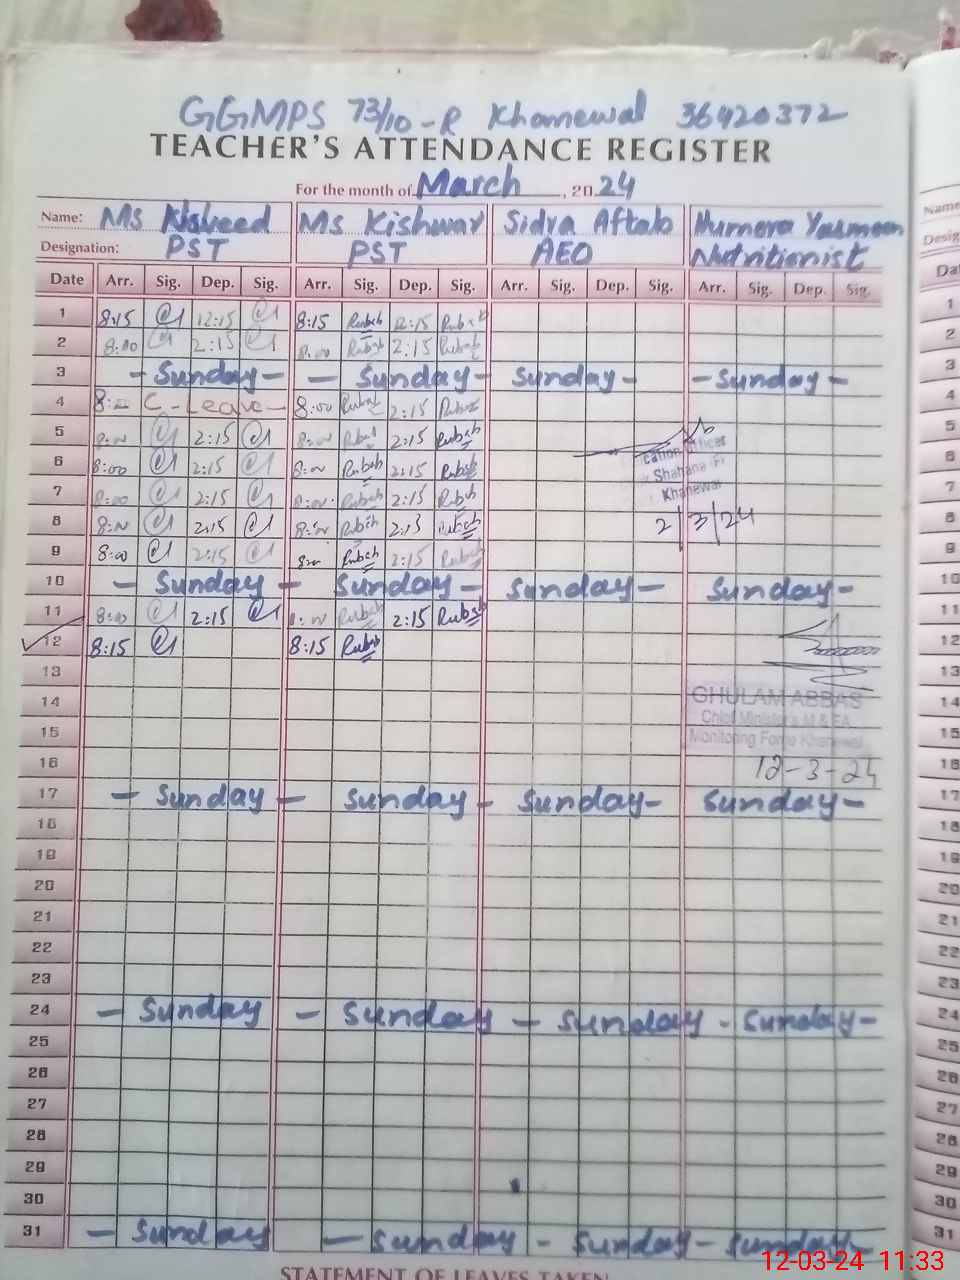 GGMPS 73/10-R Khanewal 36420372
TEACHER'S ATTENDANCE REGISTER
For the month of March, 2024
Name: Ms Ms Kishwar Sidra Aftab Yasmeen
Designation: PST PST AEO Nutritionist
Date Arr. Sig. Dep. Sig. Arr. Sig. Dep. Sig. Arr. Sig. Dep. Sig. Arr. Sig. Dep. Sig.
1 8:15 12:15 8:15 Rubab 12:15 Rubab
2 8:00 2:15 8:00 Rubab 2:15 Rubab
3 - Sunday - - Sunday - Sunday - - Sunday -
4 8:00 C-Leave- 8:00 Rubab 2:15 Rubab
5 8:00 2:15 8:00 Rubab 2:15 Rubab
6 8:00 2:15 8:00 Rubab 2:15 Rubab
7 8:00 2:15 8:00 Rubab 2:15 Rubab
8 8:00 2:15 8:00 Rubab 2:13 Rubab
9 8:00 2:15 8:00 Rubab 2:15 Rubab
10 - Sunday - Sunday - Sunday - Sunday -
11 8:00 2:15 8:00 Rubab 2:15 Rubab
12 8:15 8:15 Rubab
13
14
15
16
17 - Sunday - Sunday - Sunday - Sunday -
18
19
20
21
22
23
24 - Sunday - Sunday - Sunday - Sunday -
25
26
27
28
29
30
31 - Sunday - Sunday - Sunday - Sunday -
Officer
Shahana
Khanewal
2/3/24
GHULAM ABBAS
Chief Minister's M & EA
Monitoring Force Khanewal
12-3-24
STATEMENT OF LEAVES TAKEN
Name
Desig
Da
1
2
3
4
5
6
7
8
9
10
11
12
13
14
15
16
17
18
19
20
21
22
23
24
25
26
27
28
29
30
31
12-03-24 11:33